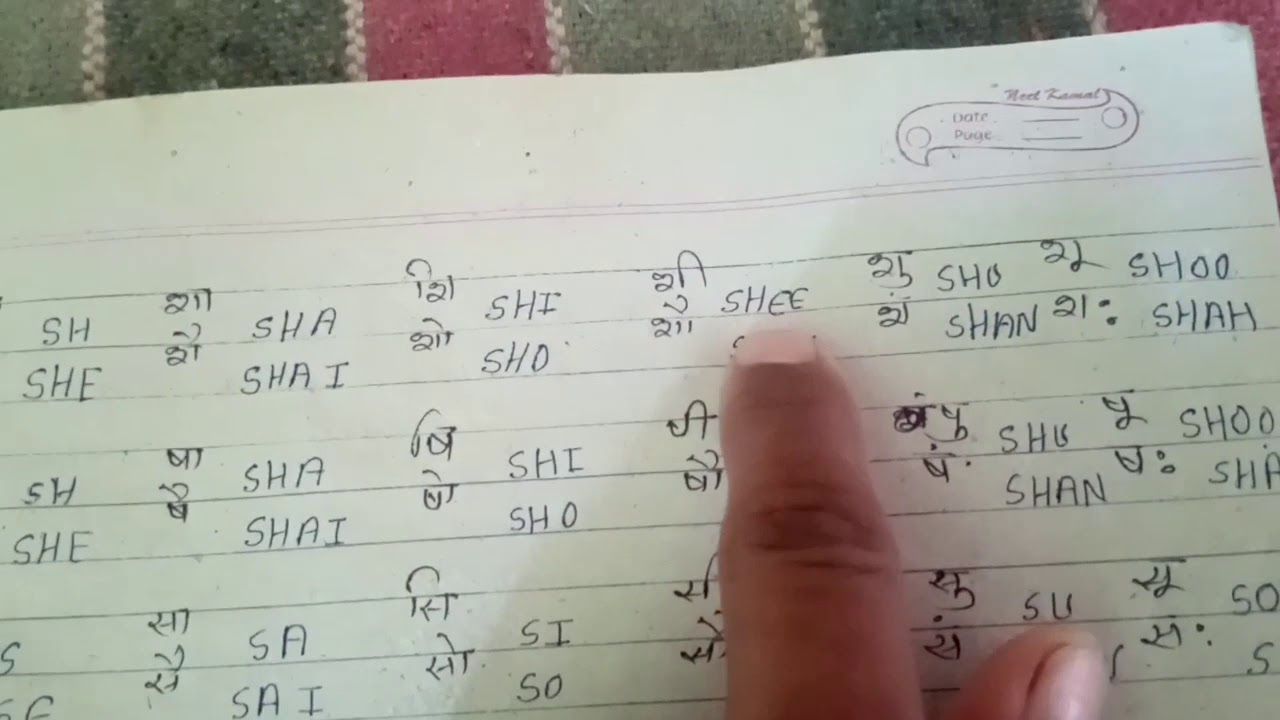 Neel Kamal
Date
Page
SH शा SHA शि SHI शी SHEE शु SHU शू SHOO
SHE शै SHAI शो SHO शौ शं SHAN शः SHAH
SH षा SHA षि SHI षी षु SHU षू SHOO
SHE षै SHAI षो SHO षौ षं SHAN षः SHA
S सा SA सि SI सी सु SU सू SO
SE सै SAI सो SO सौ सं सः S